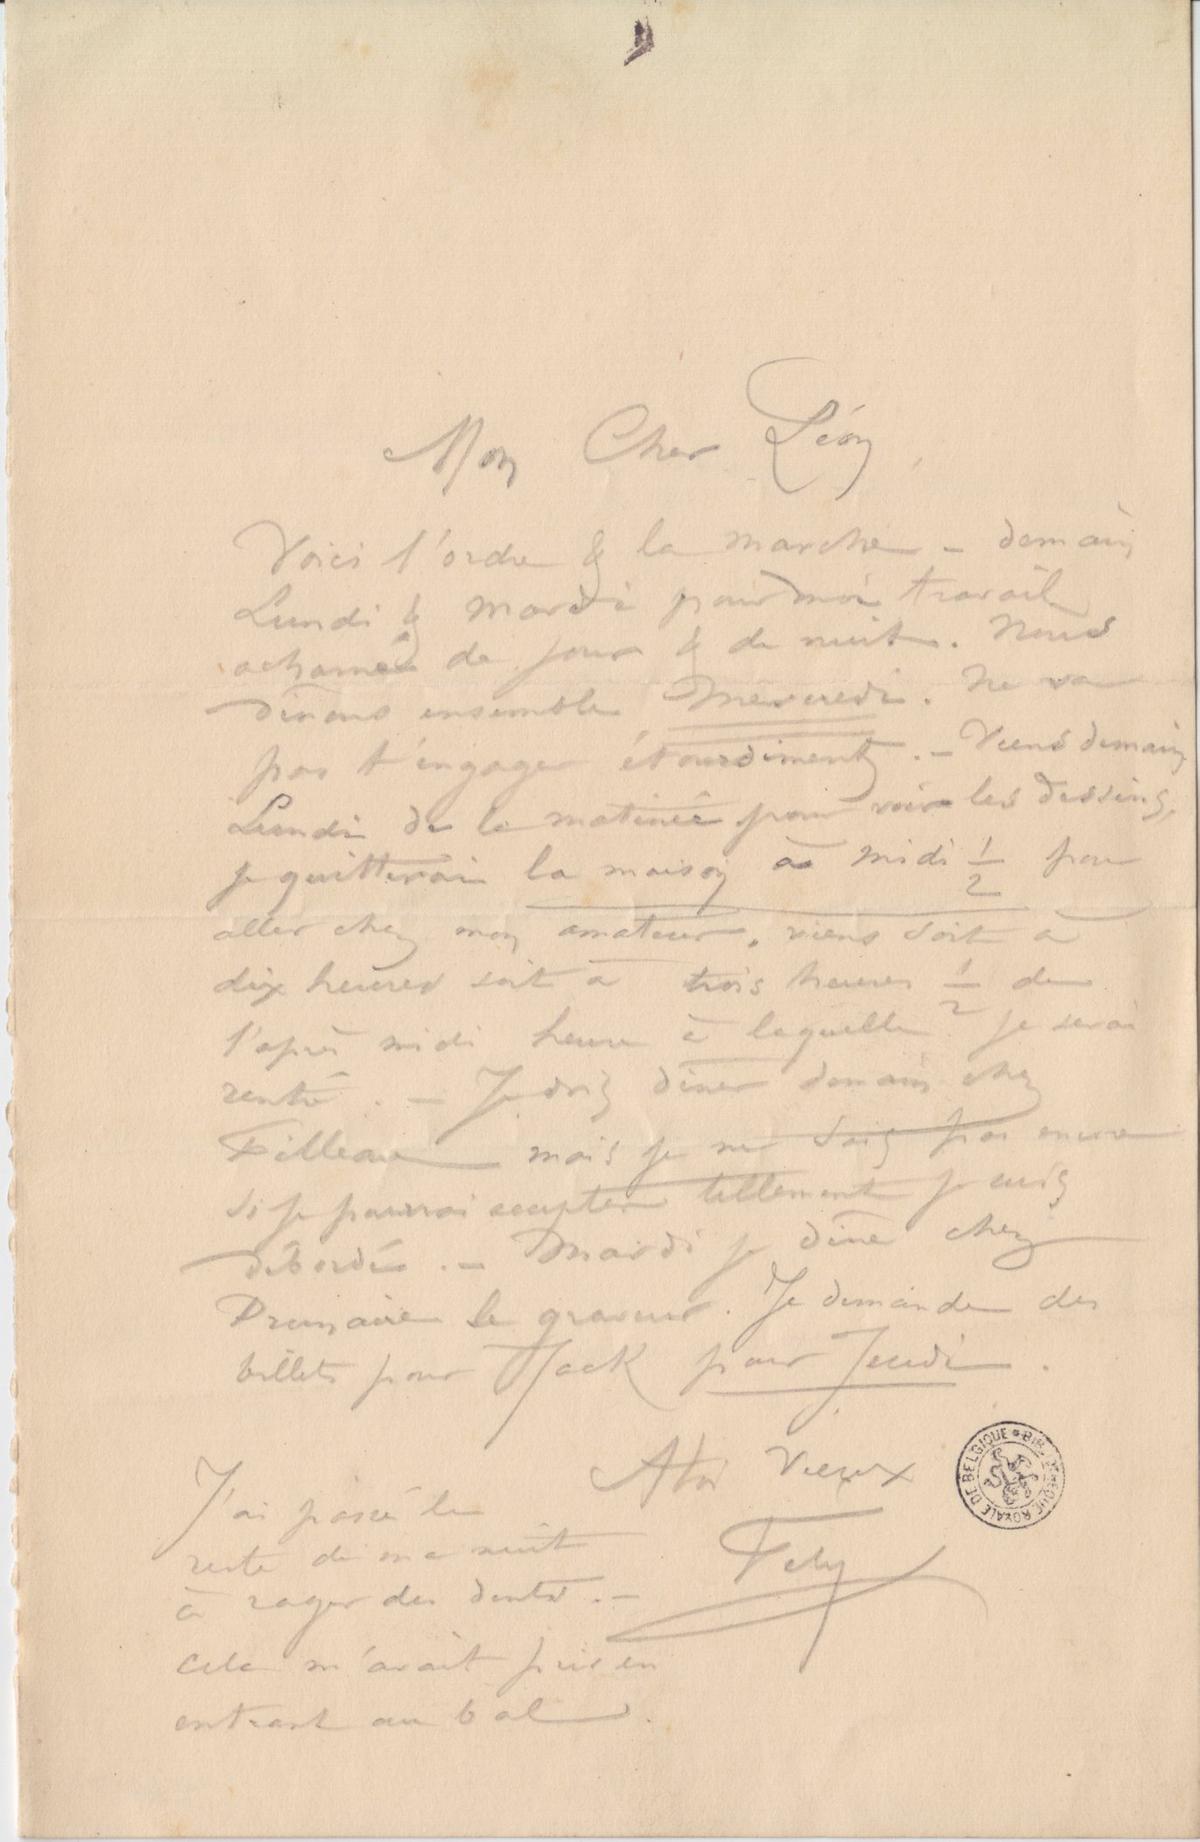 Mon Cher Léon,
Voici l'ordre & la marche – demain
Lundi & mardi pour moi travail
acharné de jour & de nuit. Nous
dînons ensemble Mercredi. Ne va
pas t'engager étourdiment. – Viens demain
Lundi de la matinée pour voir les dessins,
je quitterai la maison à midi 1/2 pour
aller chez mon amateur, viens soit à
dix heures soit à trois heures 1/2 de
l'après midi heure à laquelle je serai
rentré. – Je dois dîner demain chez
Filleau mais je ne sais pas encore
si je pourrai accepter tellement je suis
débordé. – Mardi je dîne chez
le graveur. Je demande des
billets pour Jack pour Jeudi.
A toi Vieux
Fély
J'ai passé le
reste de ma nuit
à rager des dents. –
Cela m'avait pris en
entrant au bal.
BIBLIOTHEQUE ROYALE DE BELGIQUE